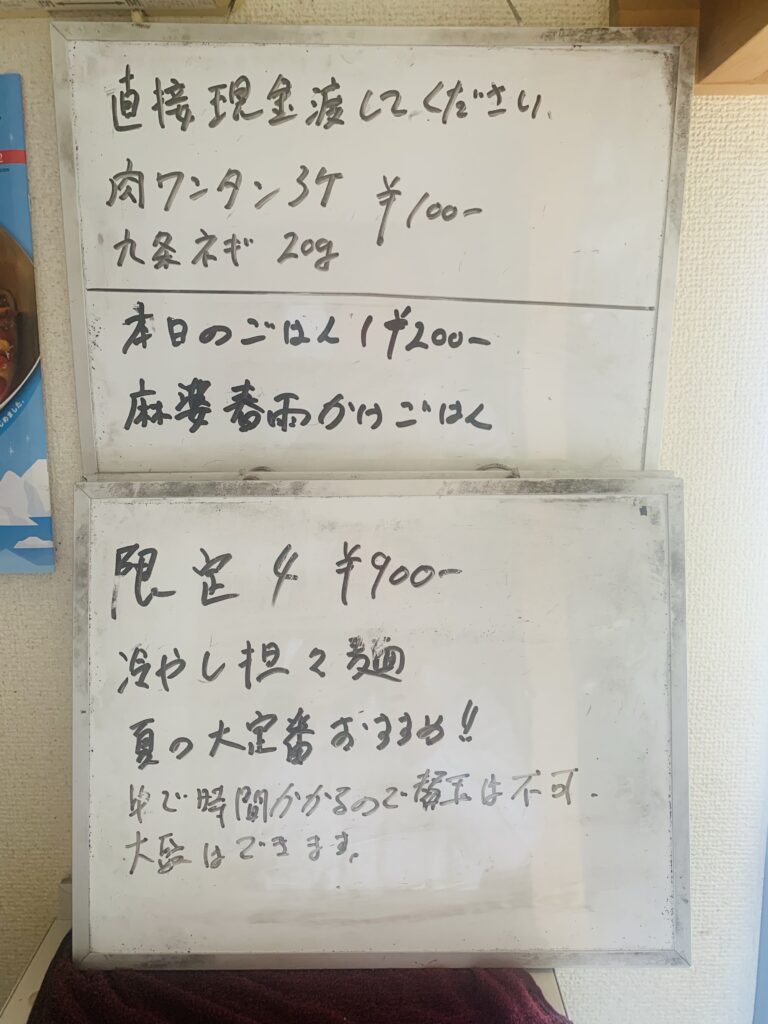 直接現金渡してください、
肉ワンタン3ケ ¥100-
九条ネギ 20g
本日のごはん1 ¥200-
麻婆春雨かけごはん
限定4 ¥900-
冷やし担々麺
夏の大定番おすすめ!!
時間かかるので替玉は不可.
大盛はできます。
めました。